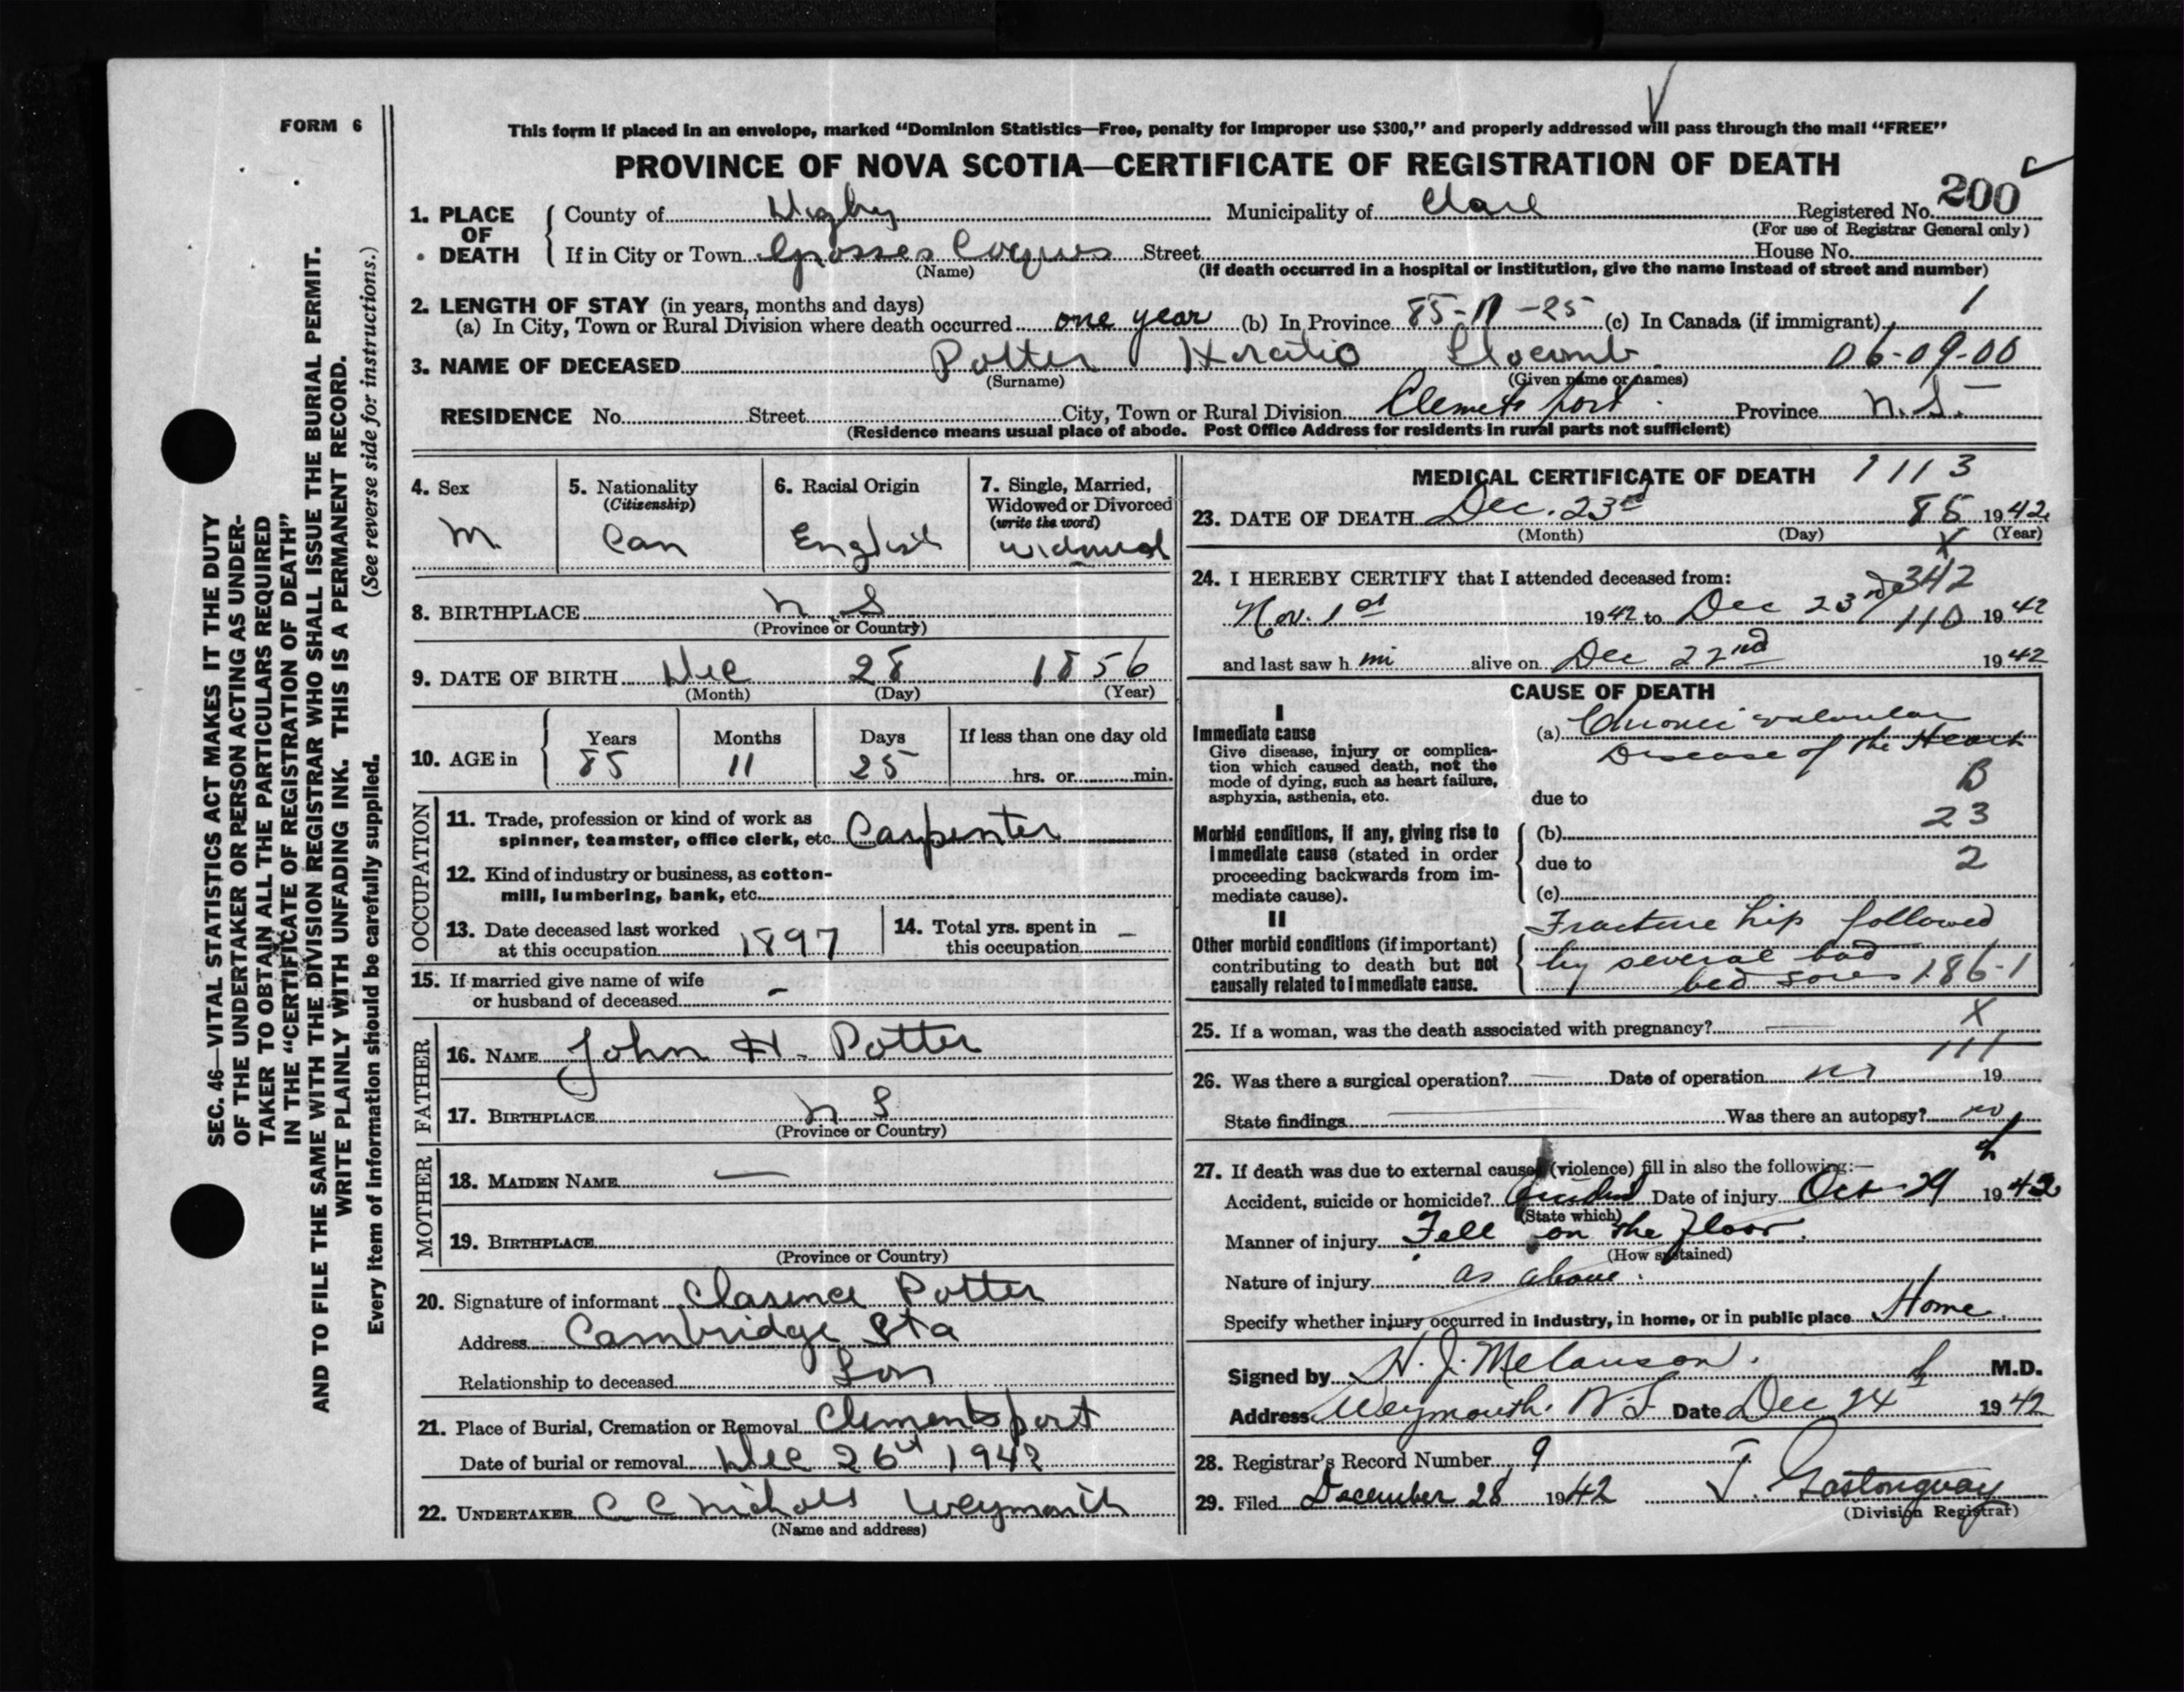 FORM 6
This form if placed in an envelope, marked “Dominion Statistics—Free, penalty for improper use $300,” and properly addressed will pass through the mail “FREE”
PROVINCE OF NOVA SCOTIA—CERTIFICATE OF REGISTRATION OF DEATH
200
1. PLACE OF DEATH County of Digby Municipality of Clare Registered No.
(For use of Registrar General only)
If in City or Town Grosses Coques Street House No.
(Name) (If death occurred in a hospital or institution, give the name instead of street and number)
2. LENGTH OF STAY (in years, months and days)
(a) In City, Town or Rural Division where death occurred one year (b) In Province 85-11-25 (c) In Canada (if immigrant) 1
3. NAME OF DECEASED Potter Horatio Slocomb 06-09-00
(Surname) (Given name or names)
RESIDENCE No. Street City, Town or Rural Division Clements port Province N.S.
(Residence means usual place of abode. Post Office Address for residents in rural parts not sufficient)
4. Sex M
5. Nationality (Citizenship) Can
6. Racial Origin English
7. Single, Married, Widowed or Divorced (write the word) widowed
8. BIRTHPLACE N S
(Province or Country)
9. DATE OF BIRTH Dec 28 1856
(Month) (Day) (Year)
10. AGE in Years 85 Months 11 Days 25 If less than one day old hrs. or min.
OCCUPATION
11. Trade, profession or kind of work as spinner, teamster, office clerk, etc. Carpenter
12. Kind of industry or business, as cotton-mill, lumbering, bank, etc.
13. Date deceased last worked at this occupation 1897
14. Total yrs. spent in this occupation –
15. If married give name of wife or husband of deceased –
FATHER
16. NAME John H. Potter
17. BIRTHPLACE N S
(Province or Country)
MOTHER
18. MAIDEN NAME —
19. BIRTHPLACE
(Province or Country)
20. Signature of informant Clarence Potter
Address Cambridge Sta
Relationship to deceased Son
21. Place of Burial, Cremation or Removal Clementsport
Date of burial or removal Dec 26th 1942
22. UNDERTAKER C C Nichols Weymouth
(Name and address)
MEDICAL CERTIFICATE OF DEATH 1113
23. DATE OF DEATH Dec. 23rd 85 1942
(Month) (Day) (Year)
X
24. I HEREBY CERTIFY that I attended deceased from:
342
Nov. 1st 1942 to Dec 23rd 110 1942
and last saw him alive on Dec 22nd 1942
CAUSE OF DEATH
I
Immediate cause
Give disease, injury or complication which caused death, not the mode of dying, such as heart failure, asphyxia, asthenia, etc.
(a) Chronic valvular
Disease of the Heart
B
due to
23
Morbid conditions, if any, giving rise to immediate cause (stated in order proceeding backwards from immediate cause).
(b)
due to 2
(c)
II
Other morbid conditions (if important) contributing to death but not causally related to immediate cause.
Fracture hip followed
by several bad
bed sores 186-1
25. If a woman, was the death associated with pregnancy? — X
111
26. Was there a surgical operation? — Date of operation no 19
State findings — Was there an autopsy? no
27. If death was due to external causes (violence) fill in also the following:—
Accident, suicide or homicide? Accident Date of injury Oct 29 1942
(State which)
Manner of injury Fell on the floor.
(How sustained)
Nature of injury as above.
Specify whether injury occurred in industry, in home, or in public place Home
Signed by H. J. Melanson. M.D.
Address Weymouth. N.S Date Dec 24 1942
28. Registrar’s Record Number 9
29. Filed December 28 1942 J. Gastonguay
(Division Registrar)
SEC. 46—VITAL STATISTICS ACT MAKES IT THE DUTY
OF THE UNDERTAKER OR PERSON ACTING AS UNDER-
TAKER TO OBTAIN ALL THE PARTICULARS REQUIRED
IN THE “CERTIFICATE OF REGISTRATION OF DEATH”
AND TO FILE THE SAME WITH THE DIVISION REGISTRAR WHO SHALL ISSUE THE BURIAL PERMIT.
WRITE PLAINLY WITH UNFADING INK. THIS IS A PERMANENT RECORD.
Every item of information should be carefully supplied. (See reverse side for instructions.)